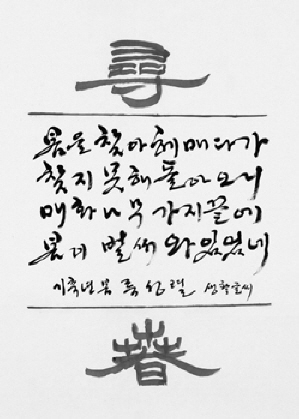 尋
봄을 찾아 헤매다가
찾지 못해 돌아오니
매화나무 가지 끝에
봄이 벌써 와 있었네
기축년 봄
春